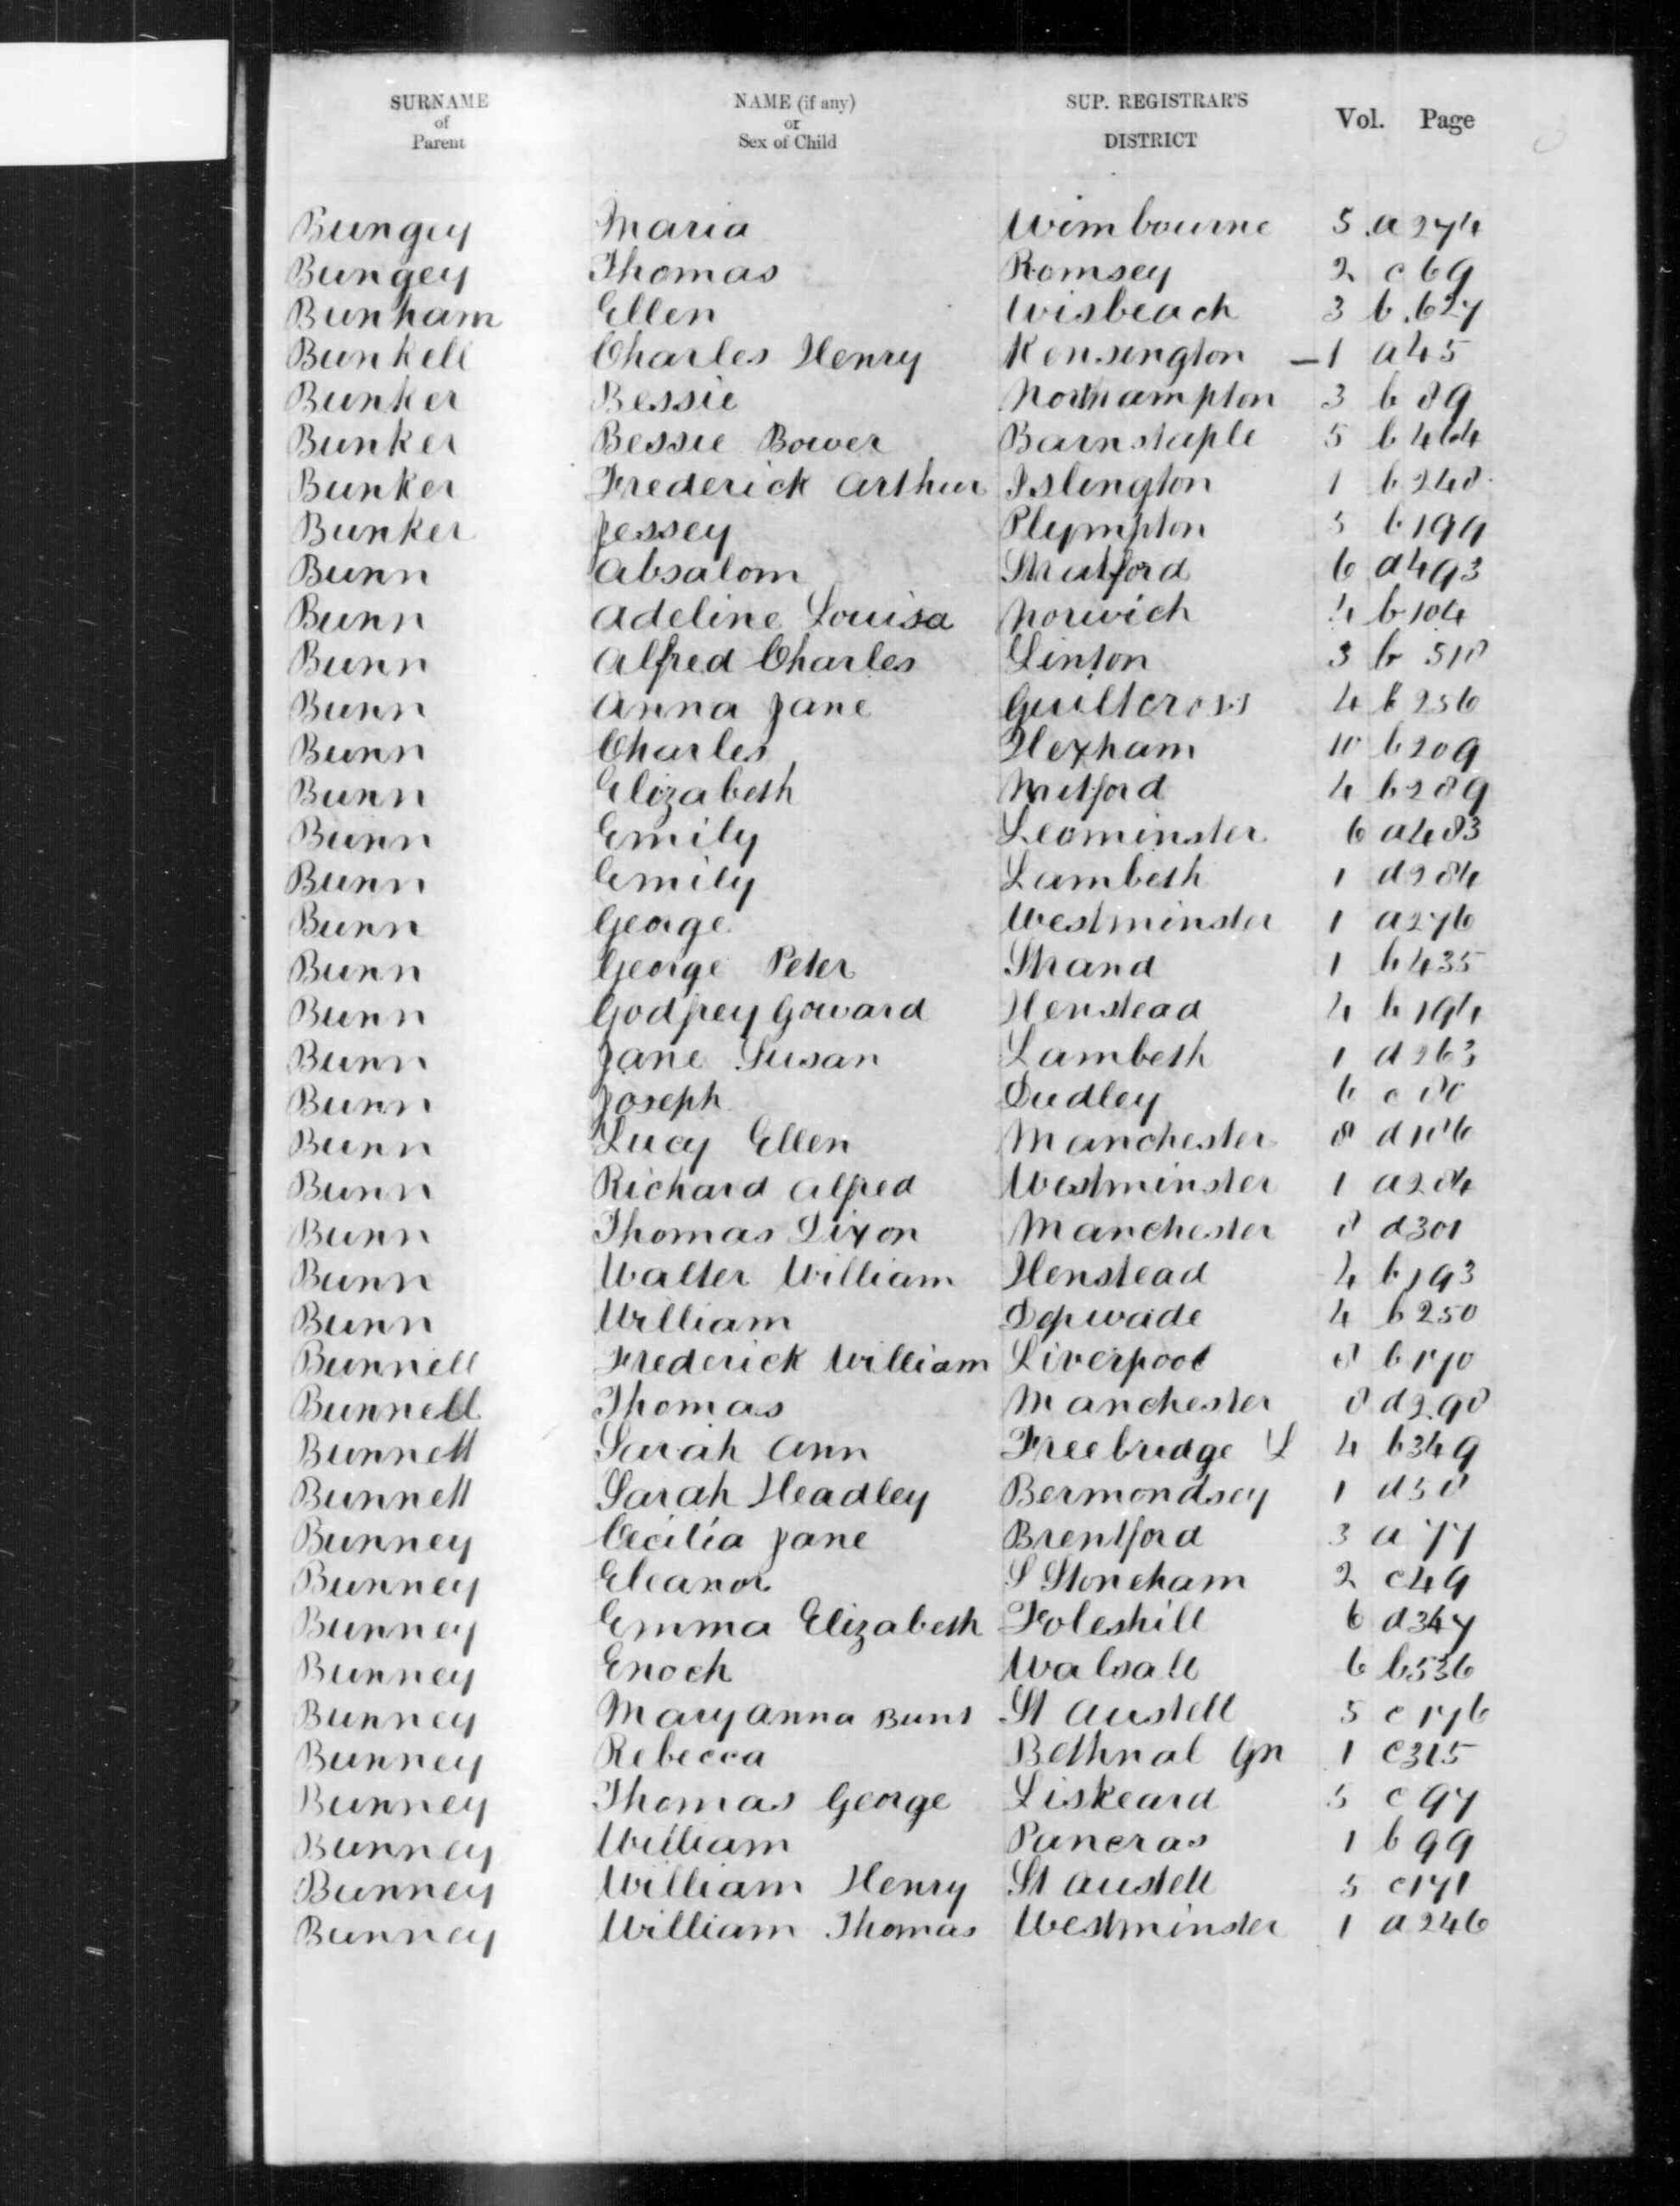 SURNAME of Parent NAME (if any) or Sex of Child SUP. REGISTRAR'S DISTRICT Vol. Page
Bungey Maria Wimbourne 5 a 274
Bungey Thomas Romsey 2 c 69
Bunham Ellen Wisbeach 3 b 627
Bunkell Charles Henry Kensington 1 a 45
Bunker Bessie Northampton 3 b 89
Bunker Bessie Bower Barnstaple 5 b 464
Bunker Frederick Arthur Islington 1 b 248
Bunker Jessey Plympton 5 b 199
Bunn Absalom Stratford 6 d 493
Bunn Adeline Louisa Norwich 4 b 104
Bunn Alfred Charles Linton 3 b 518
Bunn Anna Jane Guiltcross 4 b 256
Bunn Charles Hexham 10 b 209
Bunn Elizabeth Mitford 4 b 289
Bunn Emily Leominster 6 a 483
Bunn Emily Lambeth 1 d 284
Bunn George Westminster 1 a 276
Bunn George Peter Strand 1 b 435
Bunn Godfrey Goward Henstead 4 b 194
Bunn Jane Susan Lambeth 1 d 263
Bunn Joseph Dudley 6 c
Bunn Lucy Ellen Manchester 8 d
Bunn Richard Alfred Westminster 1 a 284
Bunn Thomas Dixon Manchester 8 d 301
Bunn Walter William Henstead 4 b 193
Bunn William Depwade 4 b 250
Bunnell Frederick William Liverpool 8 b 170
Bunnell Thomas Manchester 8 d 298
Bunnett Sarah Ann Freebridge L 4 b 349
Bunnett Sarah Headley Bermondsey 1 d 58
Bunney Cecilia Jane Brentford 3 a 77
Bunney Eleanor S Stoneham 2 c 49
Bunney Emma Elizabeth Foleshill 6 d 347
Bunney Enoch Walsall 6 b 536
Bunney Mary Anna Bunt St Austell 5 c 176
Bunney Rebecca Bethnal Gn 1 c 315
Bunney Thomas George Liskeard 5 c 97
Bunney William Pancras 1 b 99
Bunney William Henry St Austell 5 c 171
Bunney William Thomas Westminster 1 a 246